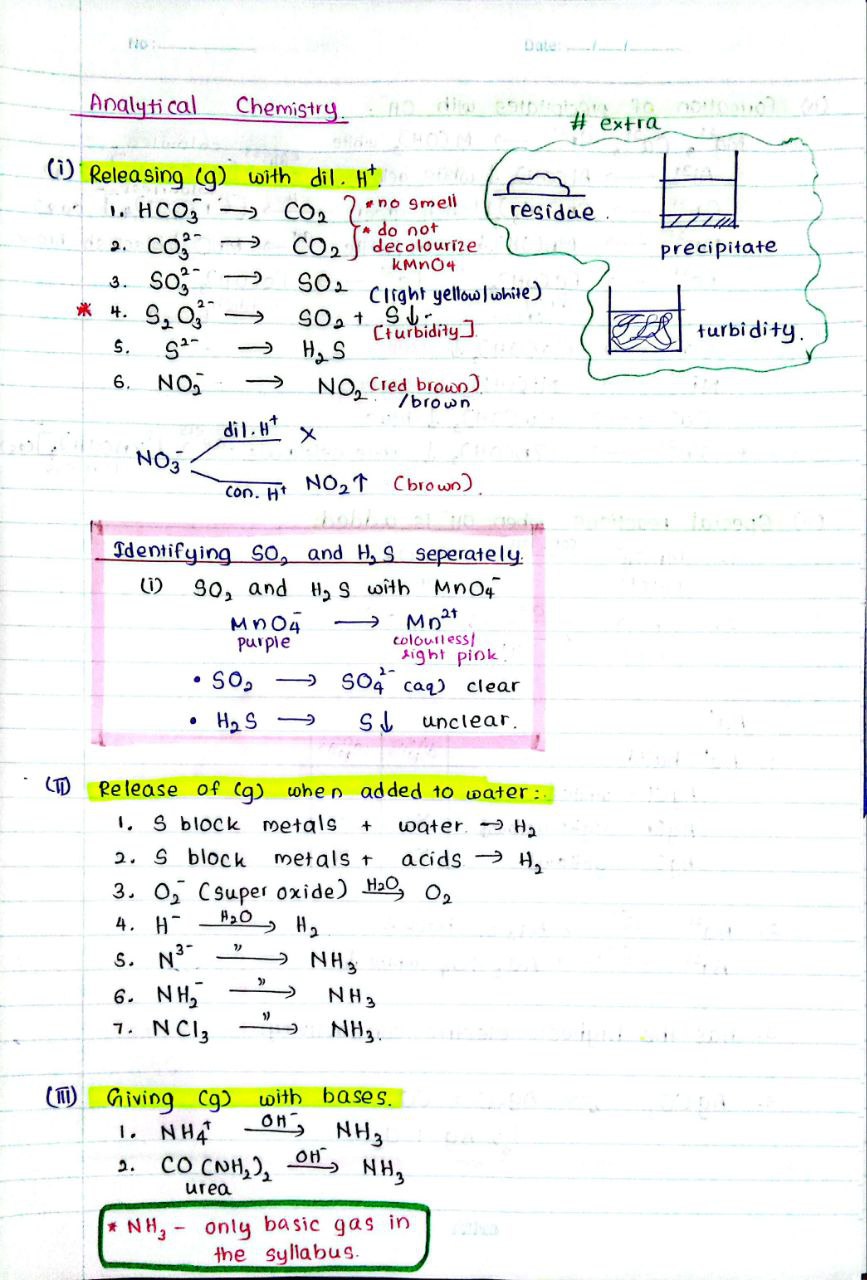 No:
Date: / /
Analytical Chemistry.
# extra
residue.
precipitate
turbidity.
(i) Releasing (g) with dil. H⁺.
1. HCO₃⁻ → CO₂
2. CO₃²⁻ → CO₂
* no smell
* do not
decolourize
KMnO4
3. SO₃²⁻ → SO₂
(light yellow/white)
* 4. S₂O₃²⁻ → SO₂ + S↓
[turbidity]
5. S²⁻ → H₂S
6. NO₂⁻ → NO₂ (red brown)
/brown
NO₃⁻ dil. H⁺ ×
con. H⁺ NO₂↑ (brown).
Identifying SO₂ and H₂S seperately.
(i) SO₂ and H₂S with MnO₄⁻
MnO₄⁻ → Mn²⁺
purple colourless/
light pink.
• SO₂ → SO₄²⁻ (aq) clear
• H₂S → S↓ unclear.
(II) Release of (g) when added to water:-
1. S block metals + water → H₂
2. S block metals + acids → H₂
3. O₂⁻ (super oxide) H₂O→ O₂
4. H⁻ H₂O→ H₂
5. N³⁻ "→ NH₃
6. NH₂⁻ "→ NH₃
7. NCl₃ "→ NH₃.
(III) Giving (g) with bases.
1. NH₄⁺ OH⁻→ NH₃
2. CO(NH₂)₂ OH⁻→ NH₃
urea
* NH₃ - only basic gas in
the syllabus.